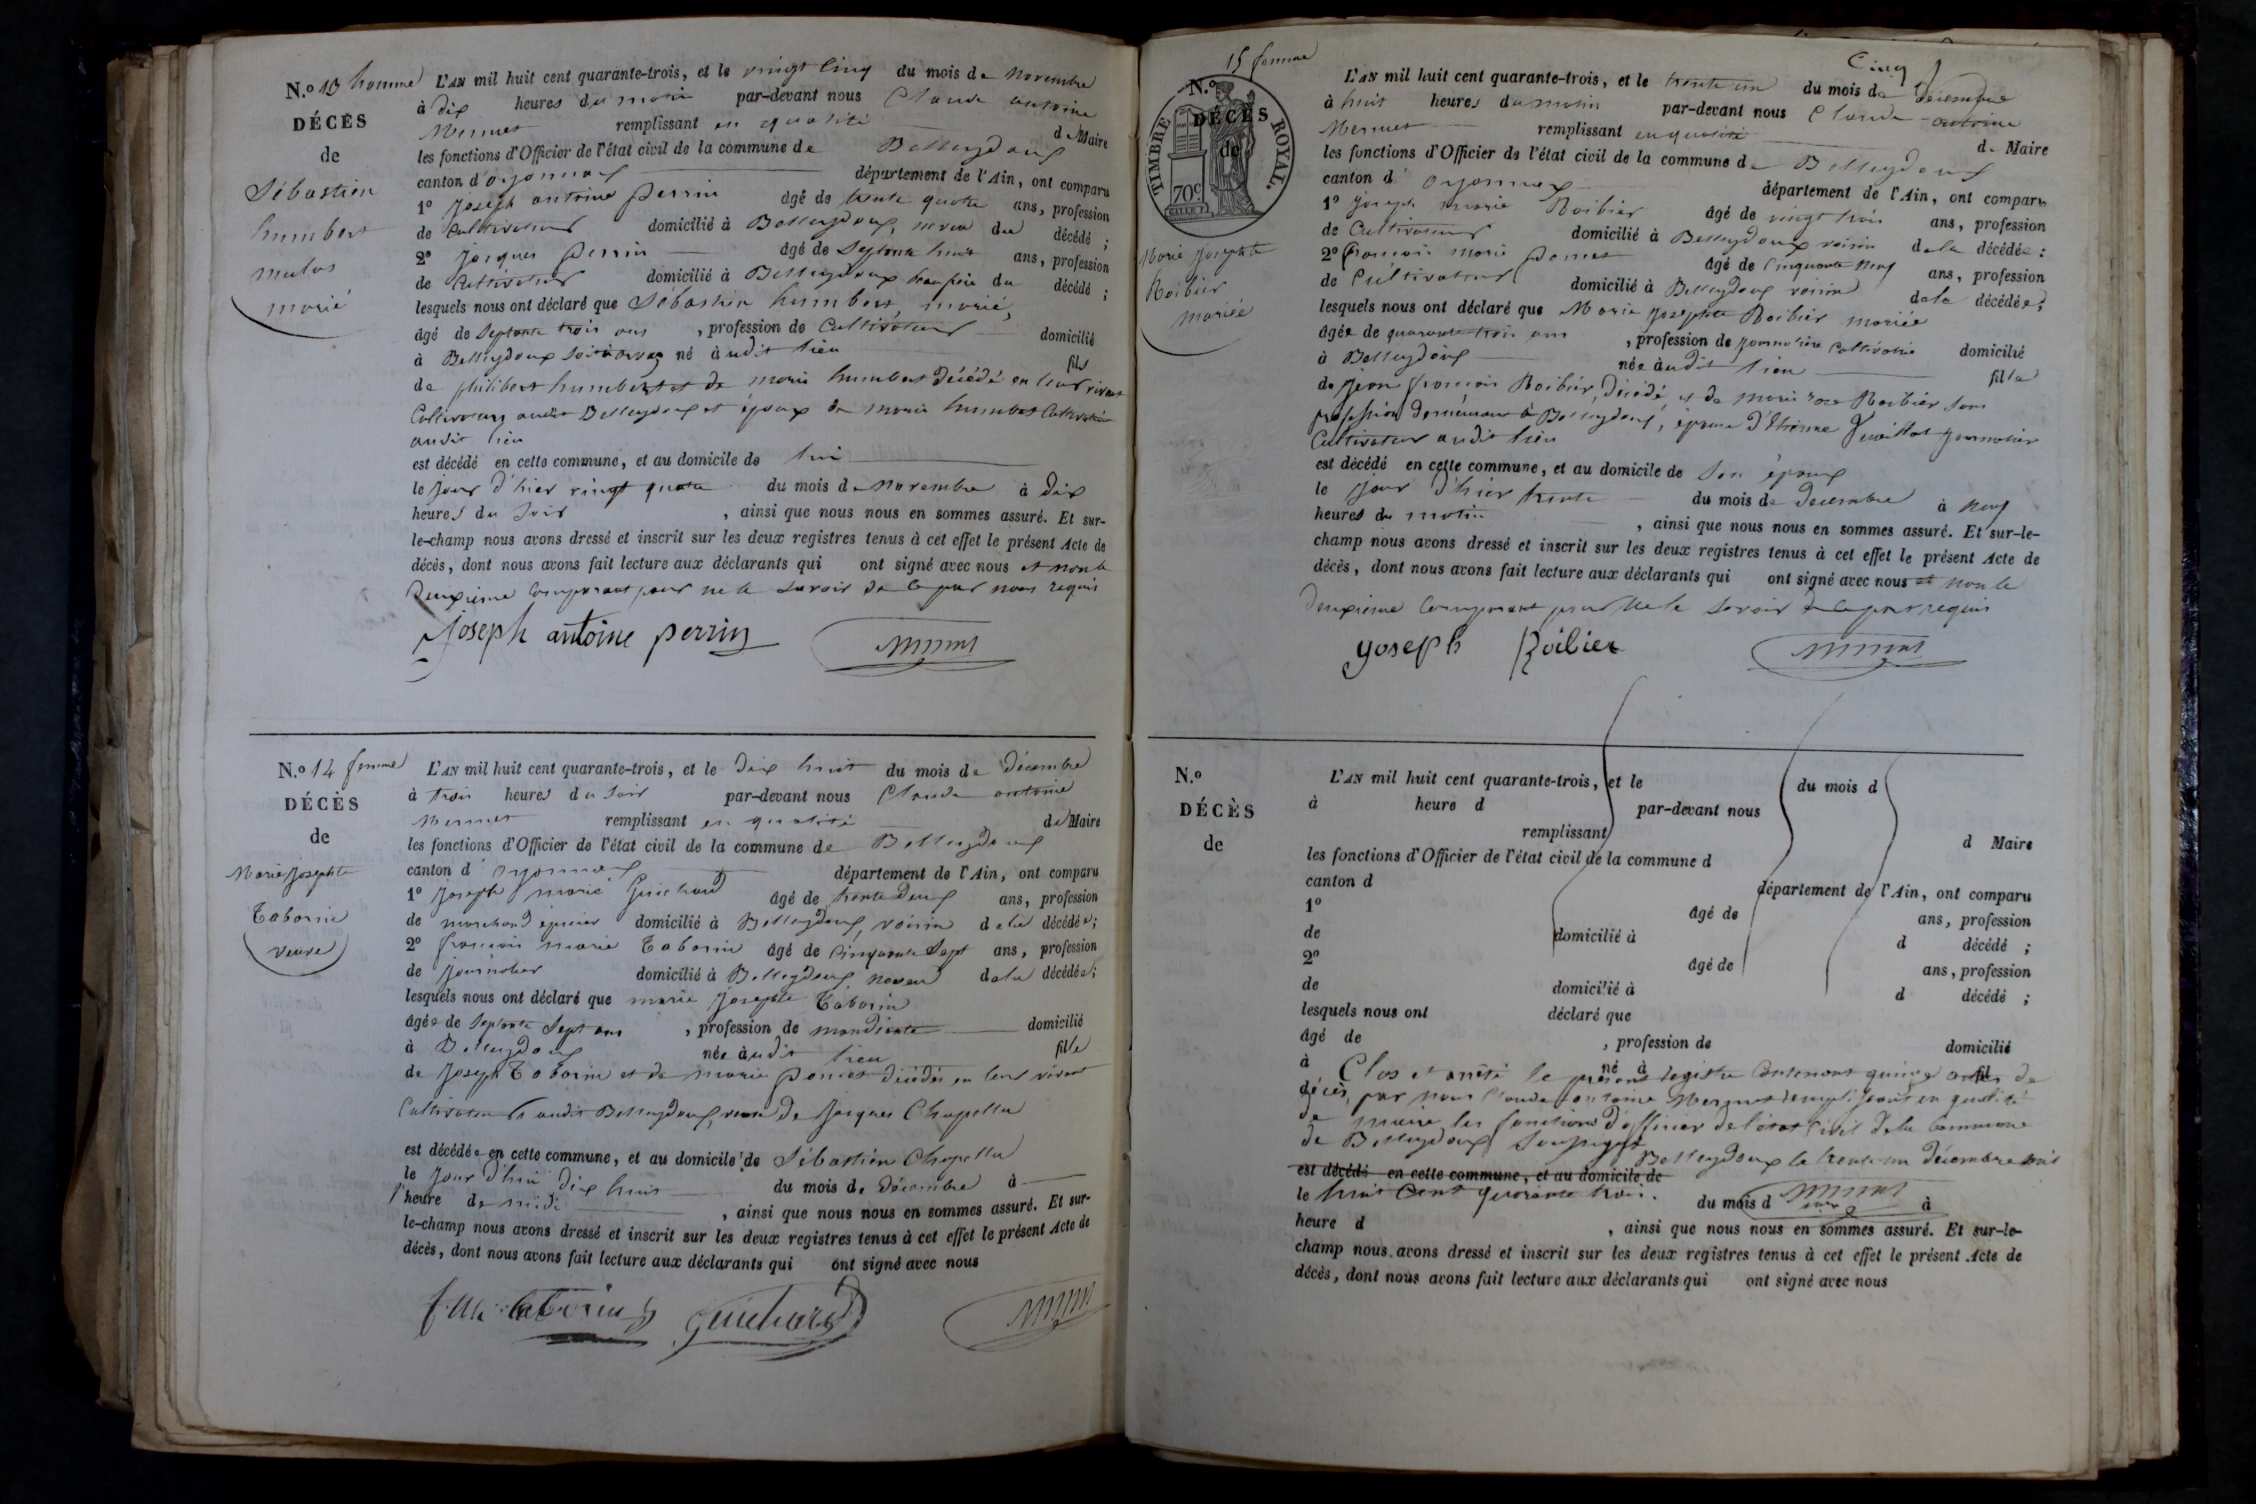 N.º 13 homme
DÉCÈS
de
Sébastien
humbert
marié
L'AN mil huit cent quarante-trois, et le vingt cinq du mois de novembre
à dix heures du matin par-devant nous Claude antoine
Mermet remplissant en qualité de Maire
les fonctions d'Officier de l'état civil de la commune de Belleydoux
canton d'oyonnax département de l'Ain, ont comparu
1º Joseph antoine perrin âgé de trente quatre ans, profession
de Cultivateur domicilié à Belleydoux, neveu du décédé ;
2º Jacques perrin âgé de Septante huit ans, profession
de Cultivateur domicilié à Belleydoux beau frère du décédé ;
lesquels nous ont déclaré que Sébastien humbert, marié,
âgé de Septante trois ans , profession de Cultivateur domicilié
à Belleydoux né audit lieu fils
de philibert humbert et de marie humbert décédé en leur vivant
Cultivateurs audit Belleydoux et époux de marie humbert Cultivatrice
audit lieu
est décédé en cette commune, et au domicile de lui
le jour d'hier vingt quatre du mois de novembre à dix
heures du Soir , ainsi que nous nous en sommes assuré. Et sur-
le-champ nous avons dressé et inscrit sur les deux registres tenus à cet effet le présent Acte de
décès, dont nous avons fait lecture aux déclarants qui ont signé avec nous et non le
Deuxieme Comparant pour ne le Savoir de ce par nous requis
Joseph antoine perrin Mermet
N.º 14 femme
DÉCÈS
de
Marie Josephte
Taborin
veuve
L'AN mil huit cent quarante-trois, et le dix huit du mois de décembre
à trois heures du Soir par-devant nous Claude antoine
Mermet remplissant en qualité de Maire
les fonctions d'Officier de l'état civil de la commune de Belleydoux
canton d'oyonnax département de l'Ain, ont comparu
1º Joseph marie Guichard âgé de trente deux ans, profession
de marchand épicier domicilié à Belleydoux, voisin de la décédée;
2º françois marie Taborin âgé de Cinquante Sept ans, profession
de journalier domicilié à Belleydoux neveu de la décédée;
lesquels nous ont déclaré que marie Josephte Taborin
âgée de Septante Sept ans , profession de mandiante domicilié
à Belleydoux née audit lieu fille
de Joseph Taborin et de marie poncet décédés en leur vivant
Cultivateurs audit Belleydoux, veuve de Jacques Chapellu
est décédée en cette commune, et au domicile de Sébastien Chapellu
le jour d'hui dix huit du mois de décembre à
l'heure de midi , ainsi que nous nous en sommes assuré. Et sur-
le-champ nous avons dressé et inscrit sur les deux registres tenus à cet effet le présent Acte de
décès, dont nous avons fait lecture aux déclarants qui ont signé avec nous
taborin Guichard Mermet
15 femme
N.º
DÉCÈS
de
TIMBRE ROYAL.
70c.
Marie Josephte
Roibier
mariée
Cinq
L'AN mil huit cent quarante-trois, et le trente un du mois de décembre
à huit heures du matin par-devant nous Claude antoine
Mermet remplissant en qualité de Maire
les fonctions d'Officier de l'état civil de la commune de Belleydoux
canton d'oyonnax département de l'Ain, ont comparu
1º Joseph marie Roibier âgé de vingt trois ans, profession
de Cultivateur domicilié à Belleydoux voisin de la décédée :
2º françois marie poncet âgé de Cinquante neuf ans, profession
de Cultivateur domicilié à Belleydoux voisin de la décédée;
lesquels nous ont déclaré que Marie Josephte Roibier mariée
âgée de quarante trois ans , profession de journalière Cultivatrice domicilié
à Belleydoux née audit lieu fille
de Jean françois Roibier, décédé, et de marie rose Roibier Sans
profession demeurant à Belleydoux, épouse d'Etienne journalier
Cultivateur audit lieu
est décédé en cette commune, et au domicile de Son époux
le jour d'hier trente du mois de décembre à neuf
heures du matin , ainsi que nous nous en sommes assuré. Et sur-le-
champ nous avons dressé et inscrit sur les deux registres tenus à cet effet le présent Acte de
décès, dont nous avons fait lecture aux déclarants qui ont signé avec nous et non le
deuxieme Comparant pour ne le Savoir de ce par requis
Joseph Roibier Mermet
N.º
DÉCÈS
de
L'AN mil huit cent quarante-trois, et le du mois d
à heure d par-devant nous
remplissant d Maire
les fonctions d'Officier de l'état civil de la commune d
canton d département de l'Ain, ont comparu
1º âgé de ans, profession
de domicilié à d décédé ;
2º âgé de ans, profession
de domicilié à d décédé ;
lesquels nous ont déclaré que
âgé de , profession de domicilié
à né à fil
Clos et arrêté le présent registre Contenant quinze actes de
décès, par nous Claude antoine Mermet remplissant en qualité
de maire les fonctions d'officier de l'état Civil de la Commune
de Belleydoux Soussigné
Belleydoux le trente un décembre mil
est décédé en cette commune, et au domicile de
le huit Cent quarante trois. du mois d Mermet à
heure d , ainsi que nous nous en sommes assuré. Et sur-le-
champ nous avons dressé et inscrit sur les deux registres tenus à cet effet le présent Acte de
décès, dont nous avons fait lecture aux déclarants qui ont signé avec nous